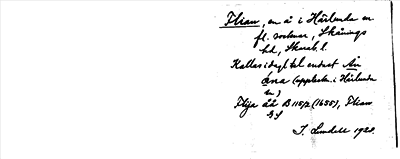 Flian, en å i Härlunda sn
fl. socknar, Skånings
hd, Skarab. l.
Kallas i dagl. tal endast Ån
åna (uppteckn. i Härlunda
sn)
Flija åå B 115/2 (1655), Flian
J. Lundell 1920.